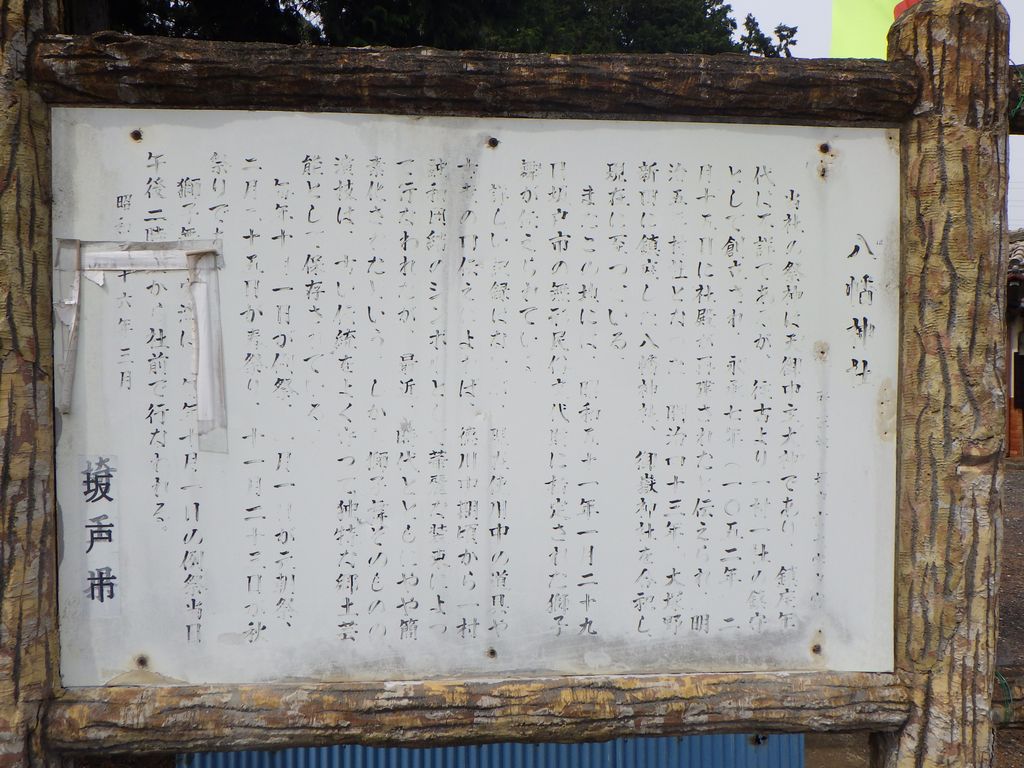 八幡神社
当社の祭神は天御中主大神であり、鎮座年
代は不詳であるが、往古より一村一社の鎮守
として創立され、永承七年(一〇五二年)二
月十五日に社殿が再建されたと伝えられ、明
治五年村社となった。明治四十三年、大塚野
新田に鎮座した八幡神社、御嶽神社を合祀し、
現在に至っている。
またこの地には、昭和五十一年一月二十九
日坂戸市の無形民俗文化財に指定された獅子
舞が伝えられている。
詳しい記録はない 使用中の道具や
古老の口伝えによれば、徳川中期頃から一村
融和団結のシンボルとし 華麗な装束によっ
て行なわれたが、最近、時代とともにやや簡
素化されたという。しかし獅子舞そのものの
演技は、古い伝統をよくたもって独特な郷土芸
能として保存されている。
毎年十一月一日が例祭、一月一日が元朝祭、
二月二十五日が春祭り、十一月二十三日が秋
祭りで
獅子舞 十月一日の例祭当日
午後二時から社前で行なわれる。
昭 十六年三月
坂戸市